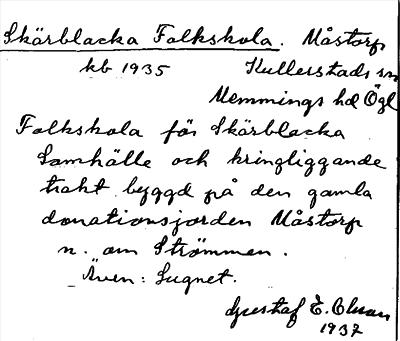 Skärblacka Folkskola. Måstorp
kb 1935 Kullerstads sn
Memmings hd Ögl
Folkskola för Skärblacka
Samhälle och kringliggande
trakt byggd på den gamla
donationsjorden Måstorp
n. om Strömmen.
Även: Sugnet.
Gustaf E. Olsson
1937